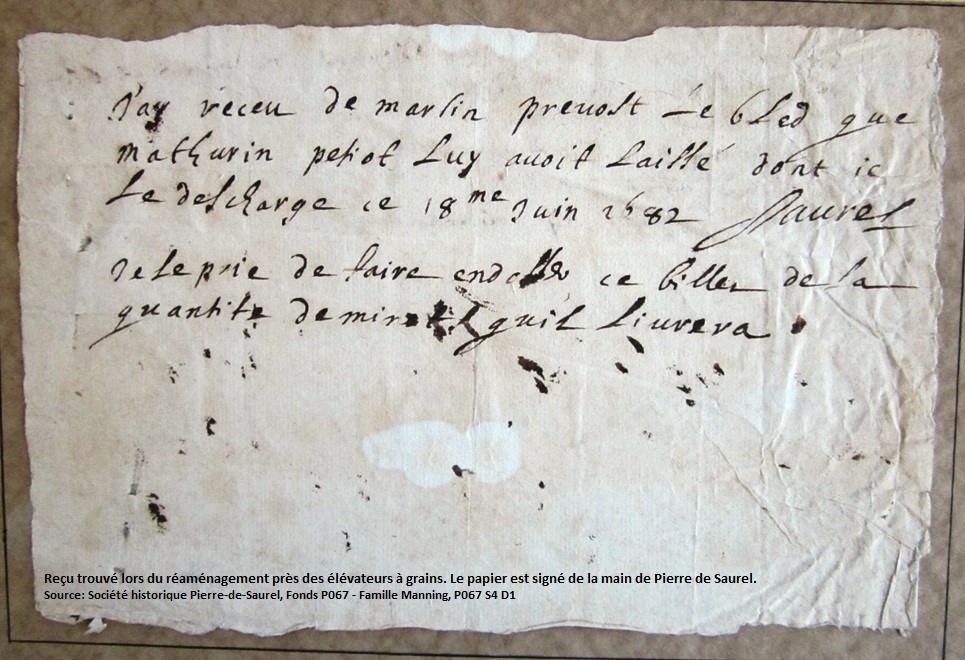 J'ay receu de martin prevost Le bled que
mathurin petiot Luy avoit Laissé dont ie
Le descharge ce 18me Juin 1682 Saurel
Je Le prie de faire endosser ce billet de La
quantite de quil Livrera
Reçu trouvé lors du réaménagement près des élévateurs à grains. Le papier est signé de la main de Pierre de Saurel.
Source: Société historique Pierre-de-Saurel, Fonds P067 - Famille Manning, P067 S4 D1